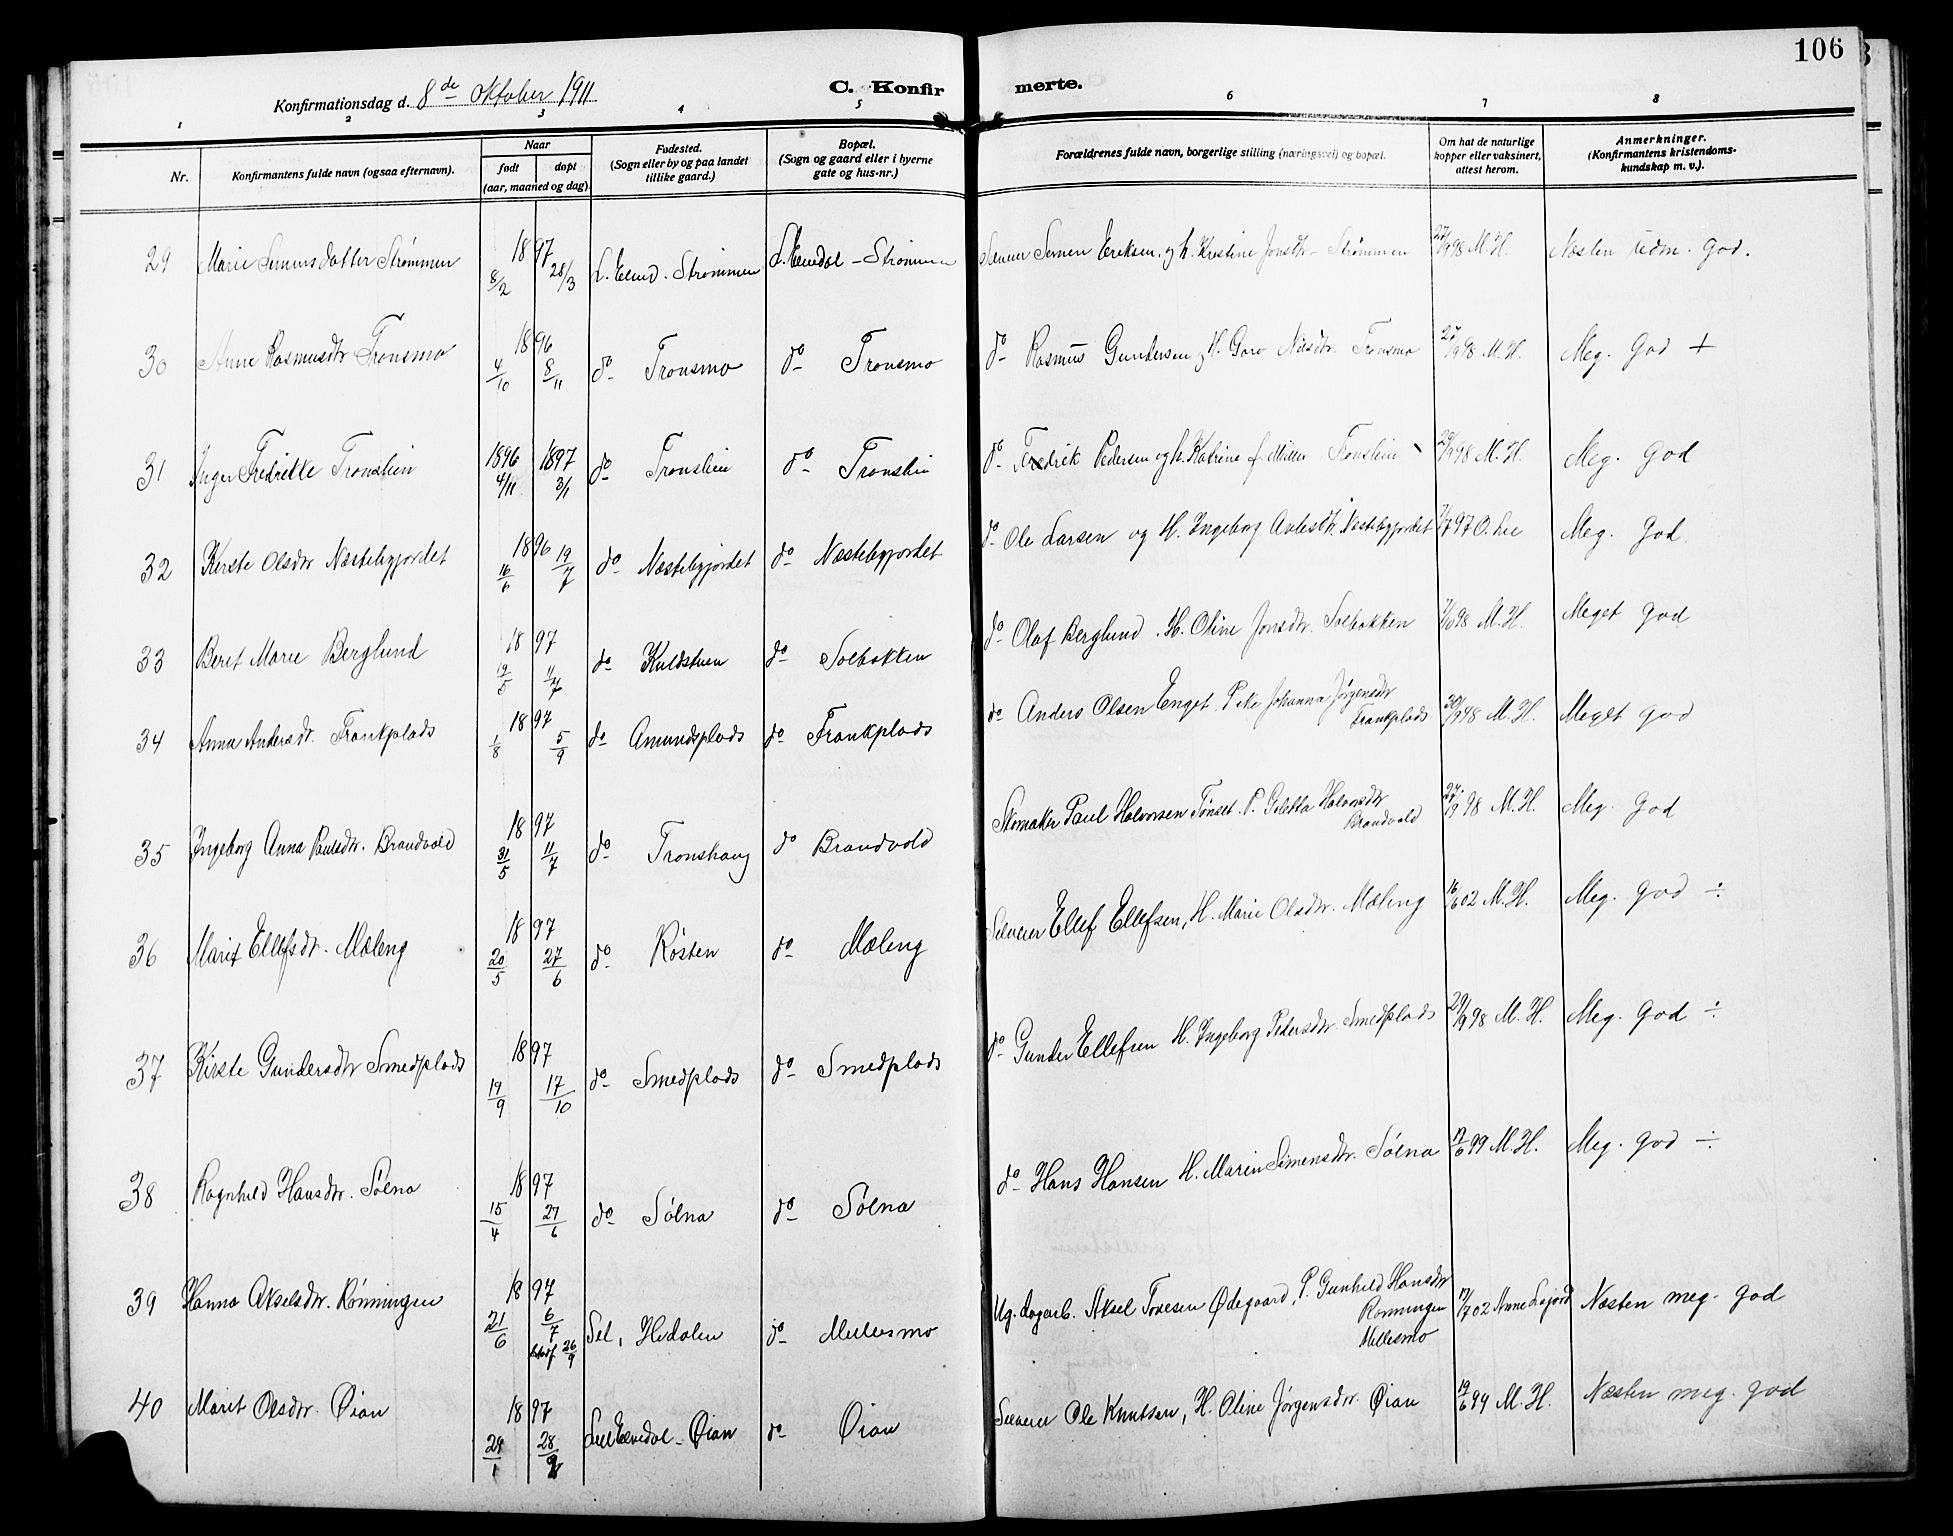 106
Konfirmationsdag d. 8de Oktober 1911
C. Konfirmerte.
1 2 3 4 5 6 7 8
Nr.
Konfirmantens fulde navn (ogsaa efternavn).
Naar
født døpt
(aar, maaned og dag)
Fødested.
(Sogn eller by og paa landet
tillike gaard.)
Bopæl.
(Sogn og gaard eller i byerne
gate og hus-nr.)
Forældrenes fulde navn, borgerlige stilling (næringsvei) og bopæl.
Om hat de naturlige
kopper eller vaksinert,
attest herom.
Anmerkninger.
(Konfirmantens kristendoms-
kundskap m. v.).
29 Marie Simensdatter Strømmen 1897 8/2 28/3 L. Elved. Strømmen L. Elvedal - Strømmen Simen Eriksen og h. Kristine Jonsdtr. Strømmen 27/9 98 M. H. Næsten udm. god.
30 Anne Rasmusdtr Tronsmo 1896 4/10 8/11 do Tronsmo do Tronsmo do Rasmus Gundersen, H. Goro Nilsdtr. Tronsmo 27/9 98 M. H. Meg. god +
31 Inger Fredrikke Tronslien 1896 4/11 1897 3/1 do Tronslien do Tronslien do Fredrik Pedersen og h. Katrine f. Tronslien 29/9 98 M. H. Meg. god
32 Kirste Olsdtr Næstebygjordet 1896 16/6 19/7 do Næstebygjordet do Næstebygjordet do Ole Larsen og H. Ingeborg Næstebygjordet 7/7 97 O. Lie Meg. god
33 Beret Marie Berglund 1897 19/5 11/7 do Kuldstuen do Solbakken do Olaf Berglund. H. Oline Jonsdtr. Solbakken 98 M. H. Meget god
34 Anna Andersdtr. Frankplads 1897 1/8 5/9 do Amundsplads do Frankplads do Anders Olsen Enget. Pike Johanna Jørgensdtr
Frankplads 30/9 98 M. H. Meget god
35 Ingeborg Anna Paulsdtr. Brandvold 1897 31/5 11/7 do Tronshaug do Brandvold Skomaker Paul Halvorsen Tønset. P. Goletta Halvorsdtr
Brandvold 27/9 98 M. H. Meg. god
36 Marit Ellefsdtr. Mæleng 1897 20/5 27/6 do Røsten do Mæleng Selveier Ellef Ellefsen, H. Marie Olsdtr. Mæleng 16/6 02 M. H. Meg. god ÷
37 Kirste Gundersdtr Smedplads 1897 19/9 17/10 do Smedplads do Smedplads do Gunder Ellefsen H. Ingeborg Pedersdtr Smedplads 29/9 98 M. H. Meg. god ÷
38 Ragnhild Hansdtr. Sølna 1897 15/4 27/6 do Sølna do Sølna do Hans Hansen H. Marin Simensdtr. Sølna 17/6 99 M. H. Meg. god ÷
39 Hanna Akselsdtr. Rønningen 1897 21/6 6/7 26/9 Sel, Hvdalen do Millesmo Ug. dagarb. Aksel Tovesen Ødegaard, P. Gunhild Hansdtr
Rønningen
Millesmo 17/7 02 Anne Næsten meg. god
40 Marit Olsdtr. Øian 1897 24/1 28/2 Lill Elvedal - Øian do Øian Selveier Ole Knutsen, H. Oline Jørgensdtr. Øian 19/6 99 M. H. Næsten meg. god